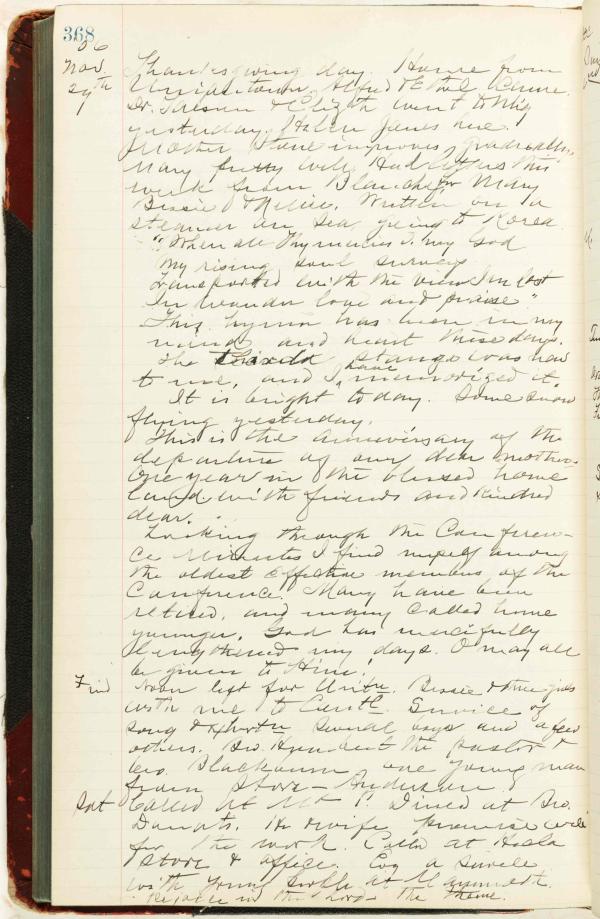 368
06
Nov.
29th
Thanksgiving day. Home from
Uniontown. Alfred & Ethel came.
Dr. & Elizth went to
yesterday. Helen Janes here.
Mother Stone improves gradually.
Mary pretty well. Had letters this
week from Blanche, for Mary
Bessie & Nellie. Written on a
steamer on sea, going to Korea.
"When all Thy mercies O my God
My rising soul surveys
Transported with the view I'm lost
In wonder love and praise"
This hymn has been in my
mind and heart these days.
The stanza was new
to me, and I have memorized it.
It is bright today. Some snow
flying yesterday.
This is the anniversary of the
departure of our dear mother.
One year in the blessed home
land with friends and kindred
dear.
Looking through the Conferen-
ce Minutes I find myself among
the oldest effective members of the
Conference. Many have been
retired, and many called home
younger. God has mercifully
lengthened my days. O may all
be given to Him!
Frid Noon left for . Bessie & three girls
with me to . Service of
song & several boys and a few
others. Bro. the pastor &
Geo. Blackburn, one young man
from Store - Anderson.
Sat Called at Mt P. Dined at Bro.
. He & wife promise well
for the work. Called at Hecla
store & office. Eve a service
with young at Mammoth.
Rejoice in the Lord - the theme.